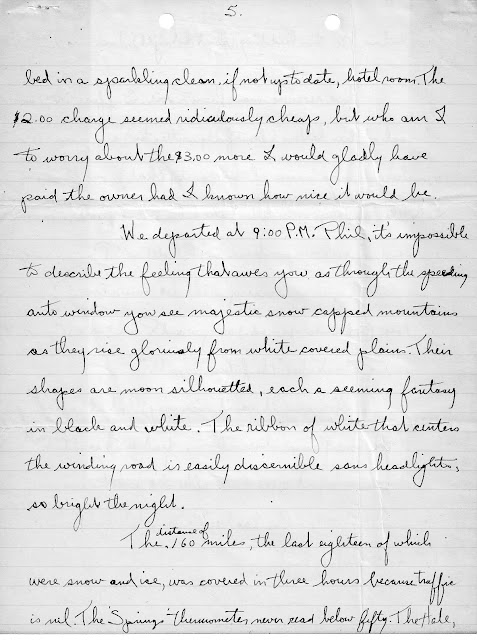 5.
bed in a sparkling clean, if not up to date, hotel room. The
$2.00 charge seemed ridiculously cheap, but who am I
to worry about the $3.00 more I would gladly have
paid the owner had I known how nice it would be.
We departed at 9:00 P.M. Phil, it's impossible
to describe the feeling that awes you as through the speeding
auto window you see majestic snow capped mountains
as they rise gloriously from white covered plains. Their
shapes are moon silhouetted, each a seeming fantasy
in black and white. The ribbon of white that centers
the winding road is easily discernible sans headlights,
so bright the night.
The distance of 160 miles, the last eighteen of which
were snow and ice, was covered in three hours because traffic
is nil. The "Springs" thermometer never read below fifty. The